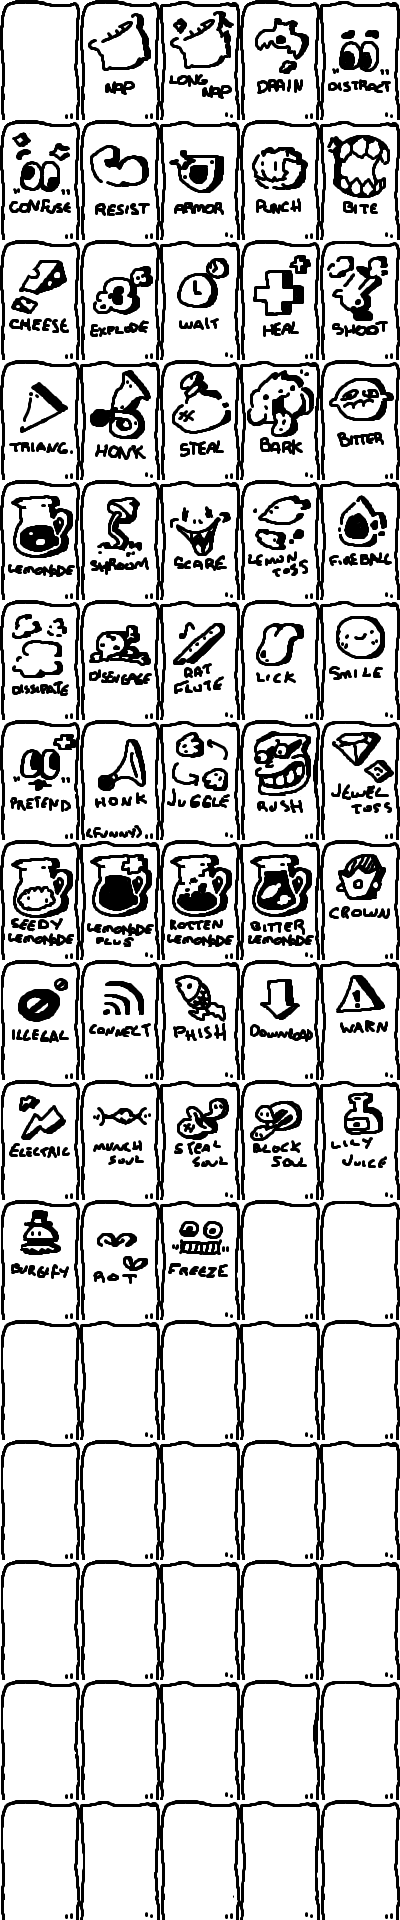 NAP
LONG
NAP
DRAIN
DISTRACT
CONFUSE
RESIST
ARMOR
PUNCH
BITE
CHEESE
EXPLODE
WAIT
HEAL
SHOOT
TRIANG.
HONK
STEAL
BARK
BITTER
LEMONADE
SHROOM
SCARE
LEMON
TOSS
FIREBALL
DISSIPATE
DISENGAGE
RAT
FLUTE
LICK
SMILE
PRETEND
HONK
(FUNNY)
JUGGLE
RUSH
JEWEL
TOSS
SEEDY
LEMONADE
LEMONADE
PLUS
ROTTEN
LEMONADE
BITTER
LEMONADE
CROWN
ILLEGAL
CONNECT
PHISH
DOWNLOAD
WARN
ELECTRIC
MUNCH
SOUL
STEAL
SOUL
BLOCK
SOUL
LILY
JUICE
BURGIFY
ROT
FREEZE